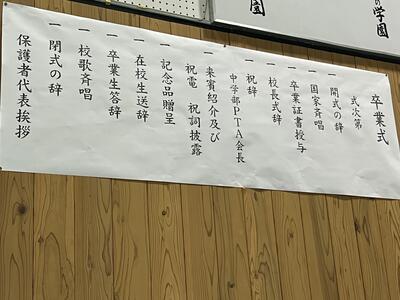 卒業式
式次第
一 開式の辞
一 国家斉唱
一 卒業証書授与
一 校長式辞
一 祝辞
中学部PTA会長
一 来賓紹介及び
祝電 祝詞披露
一 記念品贈呈
一 在校生送辞
一 卒業生答辞
一 校歌斉唱
一 閉式の辞
保護者代表挨拶
の学園
園